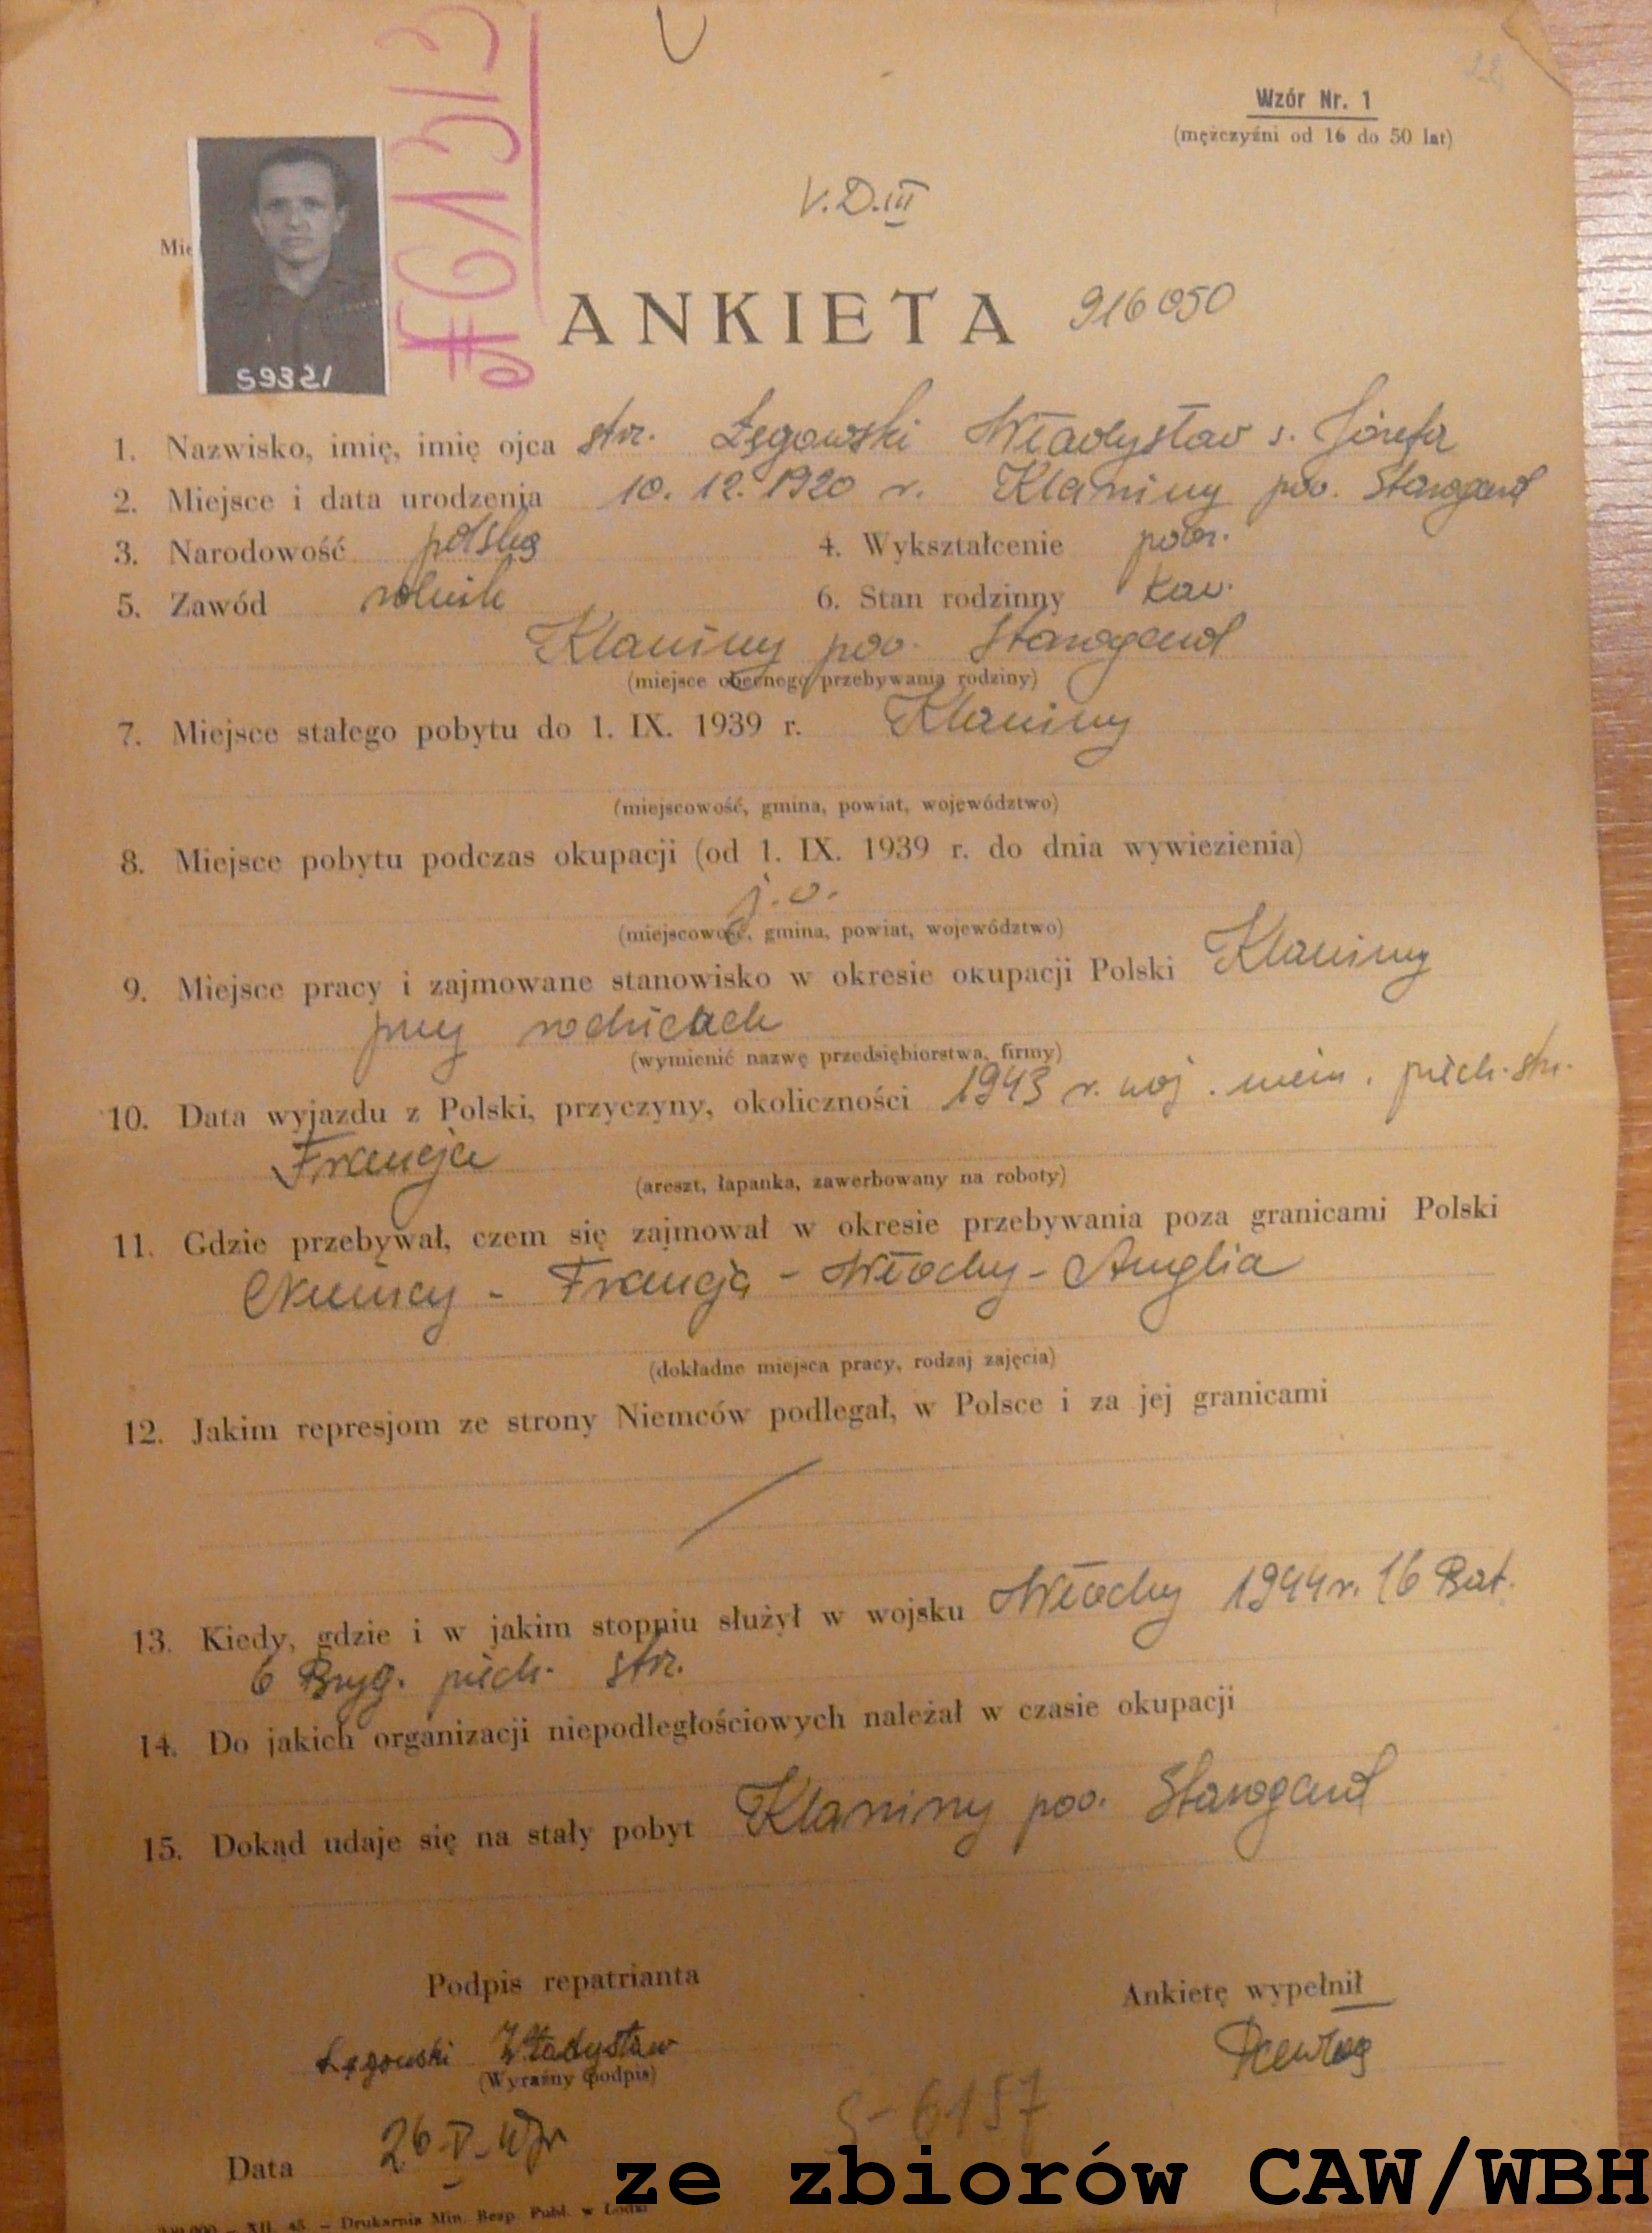 Wzór Nr. 1
(mężczyźni od 16 do 50 lat)
V.D.III
Mie
59321
ANKIETA 916050
1. Nazwisko, imię, imię ojca str. Łęgowski Władysław s. Józefa
2. Miejsce i data urodzenia 10. 12. 1920 r. Klaniny pow. Starogard
3. Narodowość polska 4. Wykształcenie
5. Zawód rolnik 6. Stan rodzinny kaw.
Klaniny pow. Starogard
(miejsce obecnego przebywania rodziny)
7. Miejsce stałego pobytu do 1. IX. 1939 r. Klaniny
(miejscowość, gmina, powiat, województwo)
8. Miejsce pobytu podczas okupacji (od 1. IX. 1939 r. do dnia wywiezienia)
j.w.
(miejscowość, gmina, powiat, województwo)
9. Miejsce pracy i zajmowane stanowisko w okresie okupacji Polski Klaniny
przy rodzicach
(wymienić nazwę przedsiębiorstwa, firmy)
10. Data wyjazdu z Polski, przyczyny, okoliczności 1943 r. woj. niem. piech. str.
Francja
(areszt, łapanka, zawerbowany na roboty)
11. Gdzie przebywał, czem się zajmował w okresie przebywania poza granicami Polski
Niemcy - Francja - Włochy - Anglia
(dokładne miejsca pracy, rodzaj zajęcia)
12. Jakim represjom ze strony Niemców podlegał, w Polsce i za jej granicami
13. Kiedy, gdzie i w jakim stopniu służył w wojsku Włochy 1944 r. 16 Bat.
6 Bryg. piech. str.
14. Do jakich organizacji niepodległościowych należał w czasie okupacji
15. Dokąd udaje się na stały pobyt Klaniny pow. Starogard
Podpis repatrianta Ankietę wypełnił
Łęgowski Władysław
(Wyraźny podpis)
S-6157
Data 26-V-47r
ze zbiorów CAW/WBH
XII. 45. – Drukarnia Min. Bezp. Publ. w Łodzi